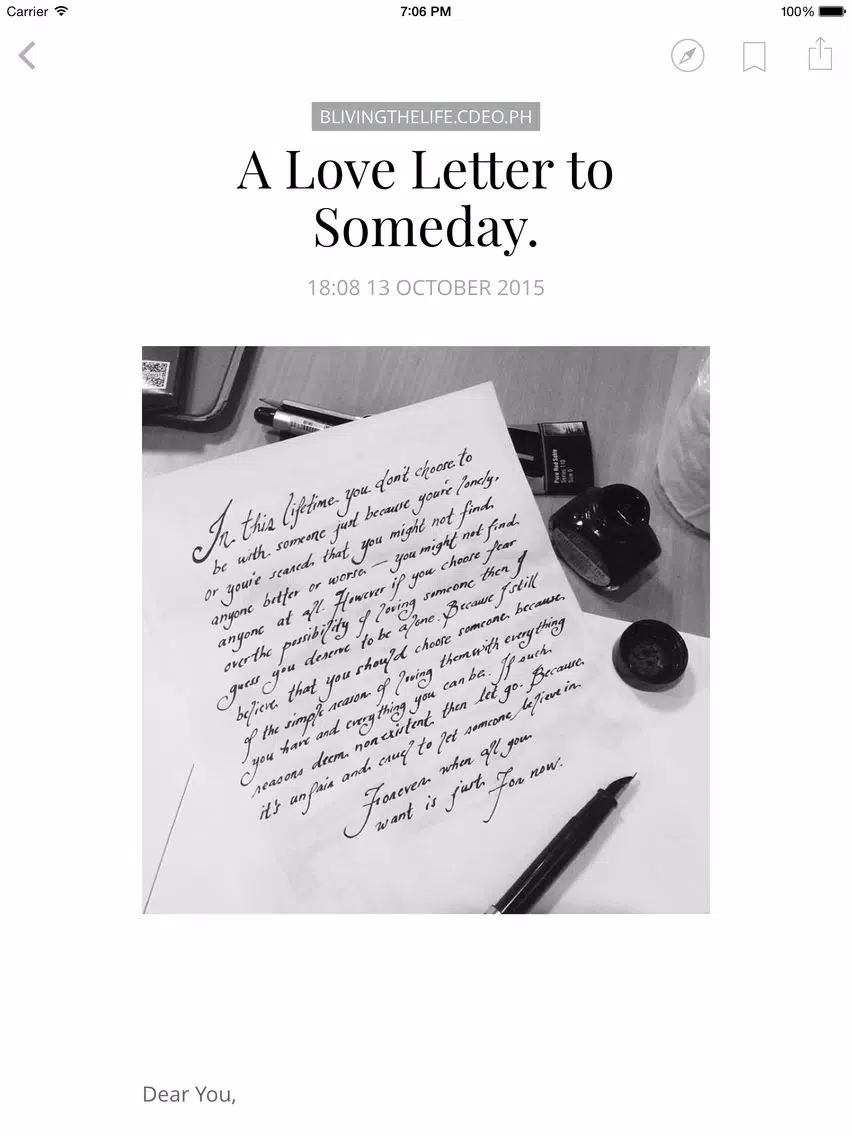 Carrier 7:06 PM 100%
BLIVINGTHELIFE.CDEO.PH
A Love Letter to
Someday.
18:08 13 OCTOBER 2015
In this lifetime you don't choose to
be with someone just because you're lonely,
or you're scared that you might not find
anyone better or worse — you might not find
anyone at all. However if you choose fear
over the possibility of loving someone then I
guess you deserve to be alone. Because I still
believe that you should choose someone because
of the simple reason of loving them with everything
you have and everything you can be. If such
reasons deem nonexistent then let go. Because
it's unfair and cruel to let someone believe in
Forever when all you
want is just For now.
Pure Red Sable
Series 110
Size 0
Dear You,